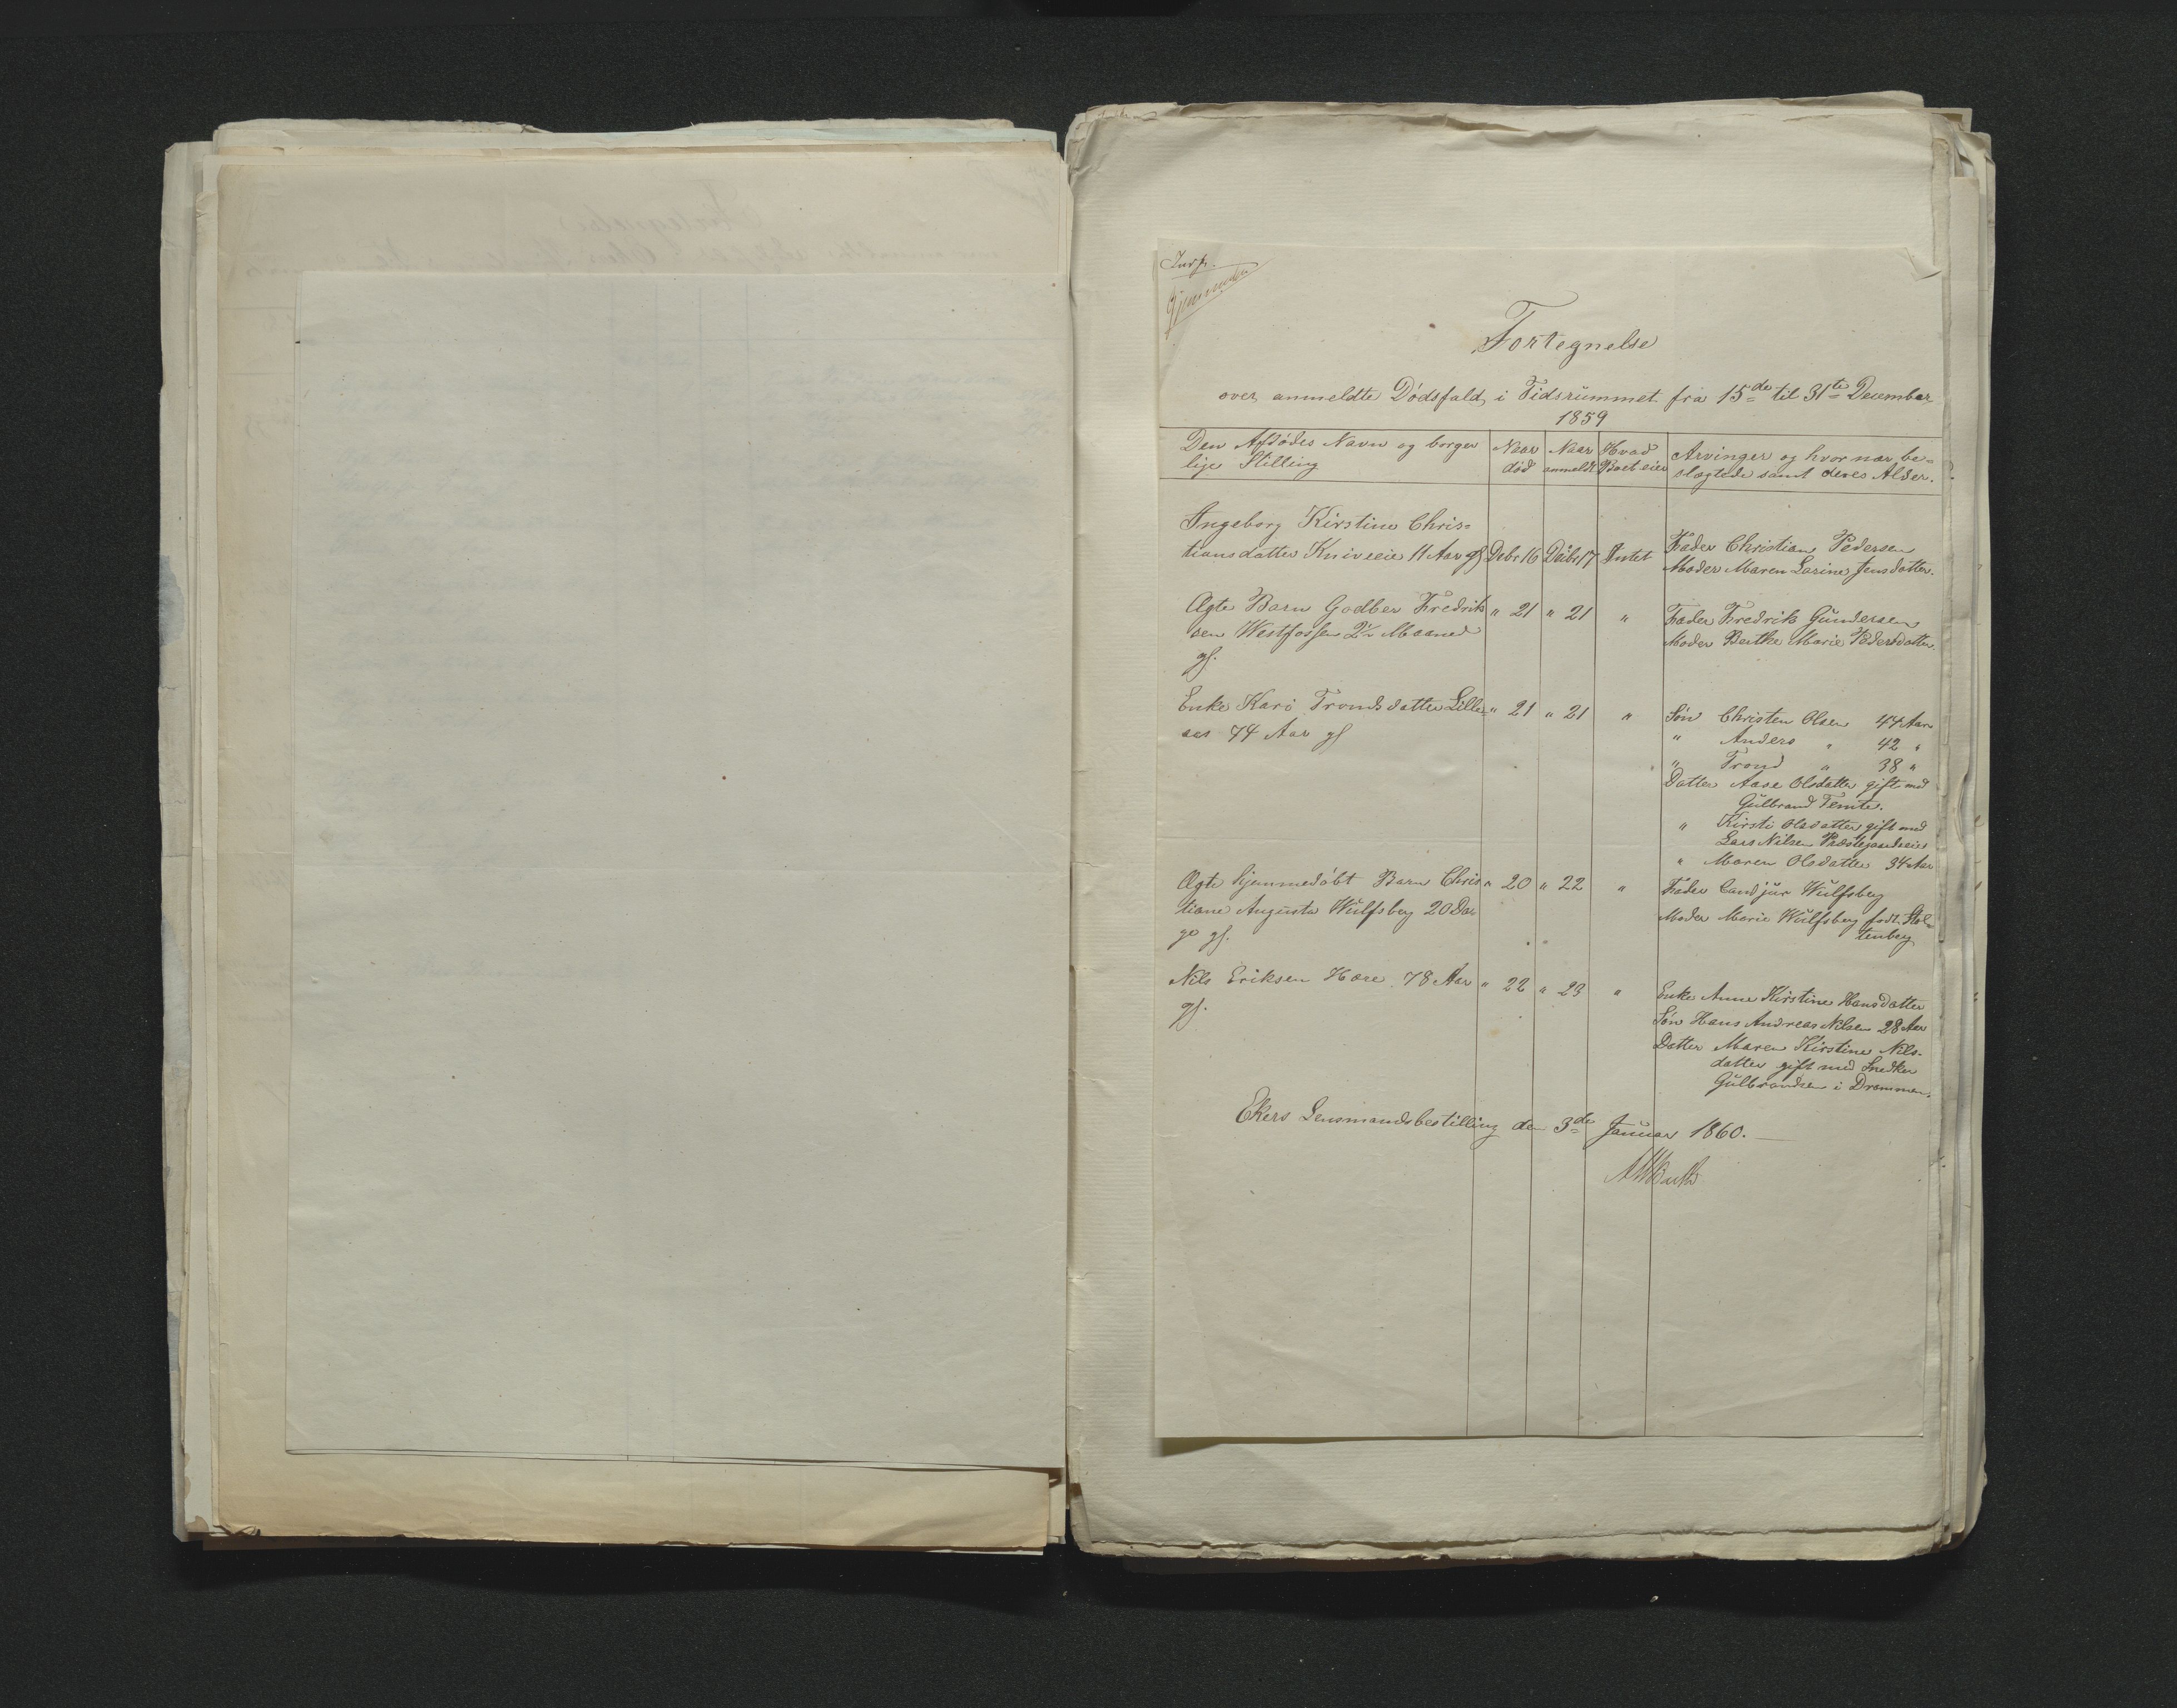 Fortegnelse
over anmeldte Dødsfald, i Tidsrummet fra 15de til 31te December
1859
Den Afdødes Navn og borger
lige Stilling
Naar
død
Naar
anmeldt
Hvad
Boet eier
Arvinger og hvor nær be-
slægtede samt deres Alder.
Ingeborg Kirstine Chris-
tiansdatter Kniveeie 11 Aar gl Debr 16 Debr 17 Intet
Fader Christian Pedersen
Moder Maren Larine Jensdatter.
Ægte Barn Godber Fredrik
sen Westfossen 2½ Maaned
gl.
" 21 " 21 "
Fader Fredrik Gundersen
Moder Berthe Marie Pedersdatter.
Enke Kari Trondsdatter Lille-
aas 74 Aar gl
" 21 " 21 "
Søn Christen Olsen 44 Aar
" Anders " 42 "
" Trond " 38 "
Datter Aase Olsdatter gift med
Gulbrand Temte.
" Kirsti Olsdatter gift med
Lars Nilsen Præstegaardseie
" Maren Olsdatter 34 Aar
Ægte hjemmedøbt Barn Chris
tiane Augusta Wulfsberg 20 Da-
ge gl.
" 20 " 22 "
Fader Candjur Wulfsberg
Moder Marie Wulfsberg født Stol-
tenberg
Nils Eriksen Hære 78 Aar
gl.
" 22 " 23 "
Enke Anne Kirstine Hansdatter
Søn Hans Andreas Nilsen 28 Aar
Datter Maren Kirstine Nils-
datter gift med Snedker
Gulbrandsen i Drammen.
Ekers Lensmandsbestilling den 3de Januar 1860.